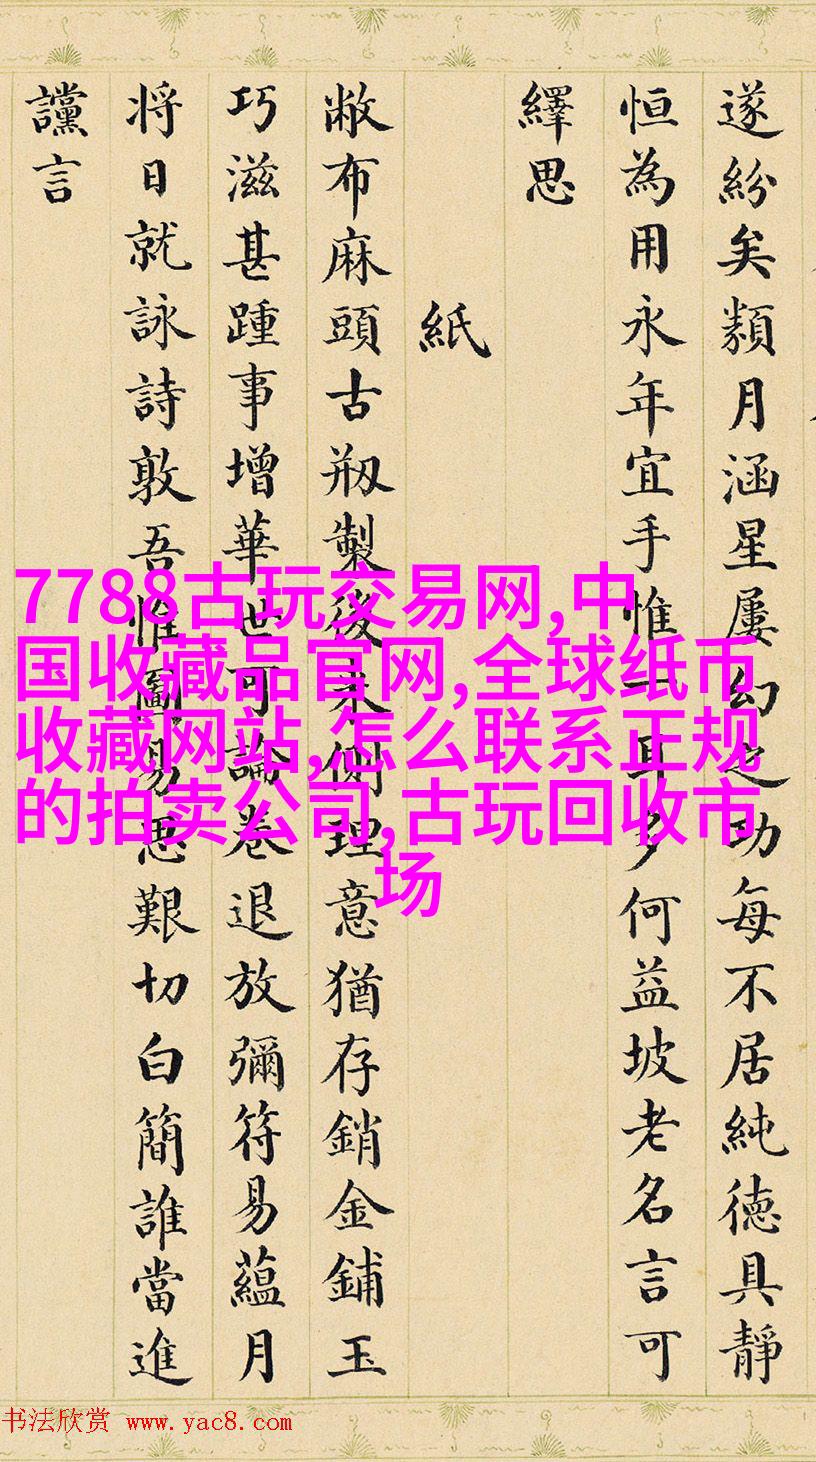 遂紛矣類月涵星屢幻之功每不居純德具靜
恒為用永年宜手惟一耳多何益坡老名言可
繹思
紙
敝布麻頭古剏製後来側理意猶存銷金鋪玉
巧滋甚踵事增華世可論卷退放彌符易蘊月
将日就詠詩敦吾惟圖易思艱切白簡誰當進
讜言
7788古玩交易网,中
国收藏品官网,全球纸币
收藏网站,怎么联系正规
的拍卖公司,古玩回收市
场
书法欣赏 www.yac8.com